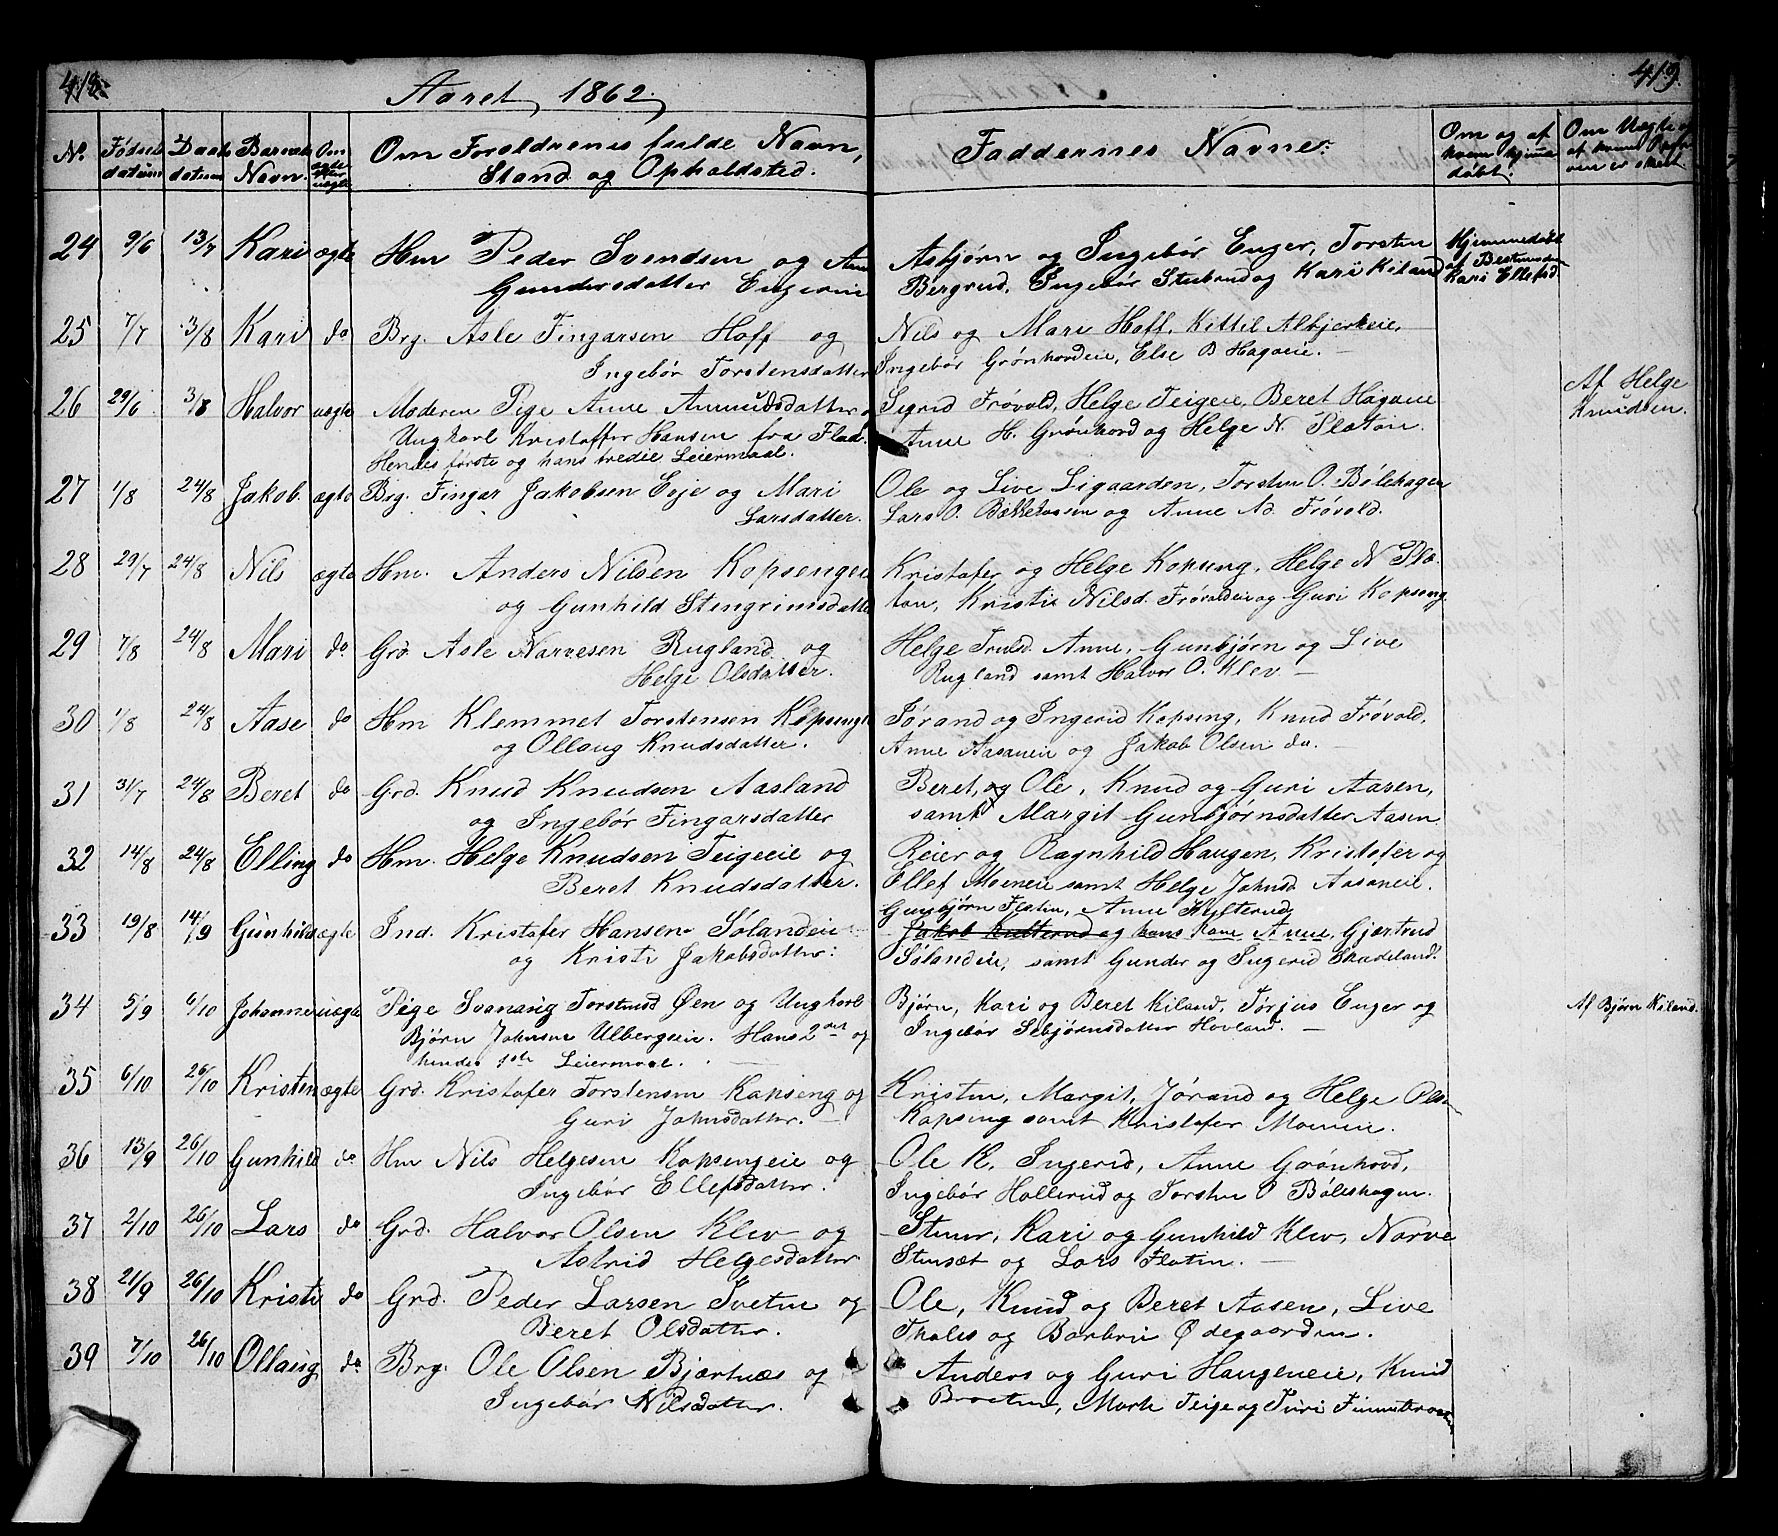 418.
Aaret 1862.
No. Fødsels datum Daabs datum Barnets Navn. Om ægte eller uægte Om Foreldrenes fulde Navn, Stand og Opholdsted.
24 9/6 13/7 Kari ægte Hm Peder Svendsen og Anne
Gundersdatter Engereie
25 7/7 3/8 Kari do Brg. Asle Fingarsen Hoff og
Ingebør Torstensdatter
26 29/6 3/8 Halvor uægte Moderen Pige Anne Amundsdatter
Ungkarl Kristoffer Hansen fra Flad.
Hendes første og hans tredie Leiermaal.
27 1/8 24/8 Jakob. ægte Brg. Fingar Jakobsen Eeje og Mari
Larsdatter.
28 29/7 24/8 Nils ægte Hm. Anders Nilsen Kopsengeie
og Gunhild Stengrimsdatter
29 7/8 24/8 Mari do Grd. Asle Narvesen Rugland og
Helge Olsdatter.
30 1/8 24/8 Aase do Hm Klemmet Torstensen Kopseng
og Ollaug Knudsdatter.
31 31/7 24/8 Beret do Grd. Knud Knudsen Aasland
og Ingebør Fingarsdatter
32 14/8 24/8 Elling do Hm. Helge Knudsen Teigeeie og
Beret Knudsdatter.
33 19/8 14/9 Gunhild ægte Ind. Kristofer Hansen Sølandeie
og Kristi Jakobsdatter.
34 5/9 6/10 Johanne uægte Pige Svanaug Torstensd Øen og Ungkarl
Bjørn Johnsen Ulbergseie. Hans 2det og
hendes 1ste Leiermaal.
35 6/10 26/10 Kristen ægte Grd. Kristofer Torstensen Kopseng og
Guri Johnsdatter.
36 13/9 26/10 Gunhild do Hm Nils Helgesen Kopsengeie og
Ingebør Ellefsdatter.
37 2/10 26/10 Lars do Grd. Halvor Olsen Klev og
Astrid Helgesdatter
38 21/9 26/10 Kristi do Grd. Peder Larsen Tveten og
Beret Olsdatter.
39 7/10 26/10 Ollaug do Brg. Ole Olsen Bjertnæs og
Ingebør Nilsdatter.
419.
Faddernes Navne. Om og af hvem hjemmedøbt.
Asbjørn og Ingebør Enger, Torsten
Bergrud, Ingebør Stubrud og Kari Kiland
Hjemmedøbt
af Bestmoder
Kari Ellefsd
Nils og Mari Hoff, Kittil Albjerkeie,
Ingebør Grønhovdeie, Else B Hagaeie.
Sigrid Frøvold, Helge Teigeie, Beret Hagaeie
Anne H. Grønhovd og Helge N. Platon.
Af Helge
Knudsen.
Ole og Live Ligaarden, Torsten O. Bølehagen
Lars O. og Anne Ad. Frøvold.
Kristofer og Helge Kopseng, Helge N Pla-
ton, Kristie Nilsd. Frøvoldeie og Guri Kopseng
Helge Trulsd. Anne, Gunbjørn og Live
Rugland samt Halvor O. Klev
Jørand og Ingerid Kopseng, Knud Frøvold,
Anne Aasaneie og Jakob Olsen do.
Beret, og Ole, Knud og Guri Aasen,
samt Margit Gunbjørnsdatter Aasen
Reier og Ragnhild Haugen, Kristofer og
Ellef Moeneie samt Helge Johnsd Aasaneie.
Gunbjørn Flaten, Anne Hylterud
Jakob Kulterud og hans Kone Anne, Gjertrud
Sølandeie, samt Gunder og Ingerid Skadeland.
Bjørn, Kari og Beret Kiland, Torjus Enger og
Ingebør Sebjørnsdatter Hovland.
Af Bjørn Kiland.
Kristen, Margit, Jørand og Helge Olsen
Kopseng samt Kristofer Moeneie.
Ole K, Ingerid, Anne Grønhovd,
Ingebør Hollerud og Torsten O Bøleshagen.
Steener, Kari og Gunhild Klev, Narve
Stensæt og Lars Flaten.
Ole, Knud og Beret Aasen, Live
Tholes og Barbrie Ødegaarden.
Anders og Guri Haugeneie, Knud
Braaten, Marte Teige og Turi